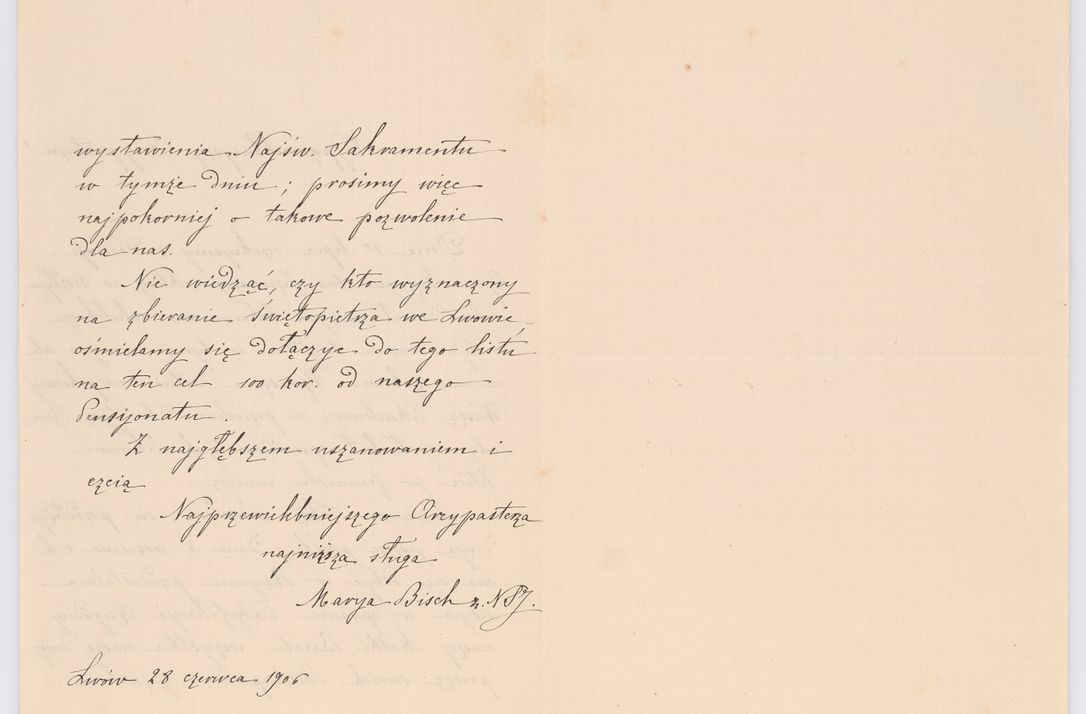 wystawienia Najśw. Sakramentu
w tymże dniu ; prosimy więc
najpokorniej o takowe pozwolenie
dla nas.
Nie wiedząc, czy kto wyznaczony
na zbieranie świętopietrza we Lwowie,
ośmielamy się dołączyc do tego listu
na ten cel 100 kor. od naszego
Pensjonatu.
Z najgłębszem uszanowaniem i
czcią
Najprzewielebniejszego Arcypasterza
najniższa sługa
Marya Bisch z. NSJ.
Lwów 28 czerwca 1906